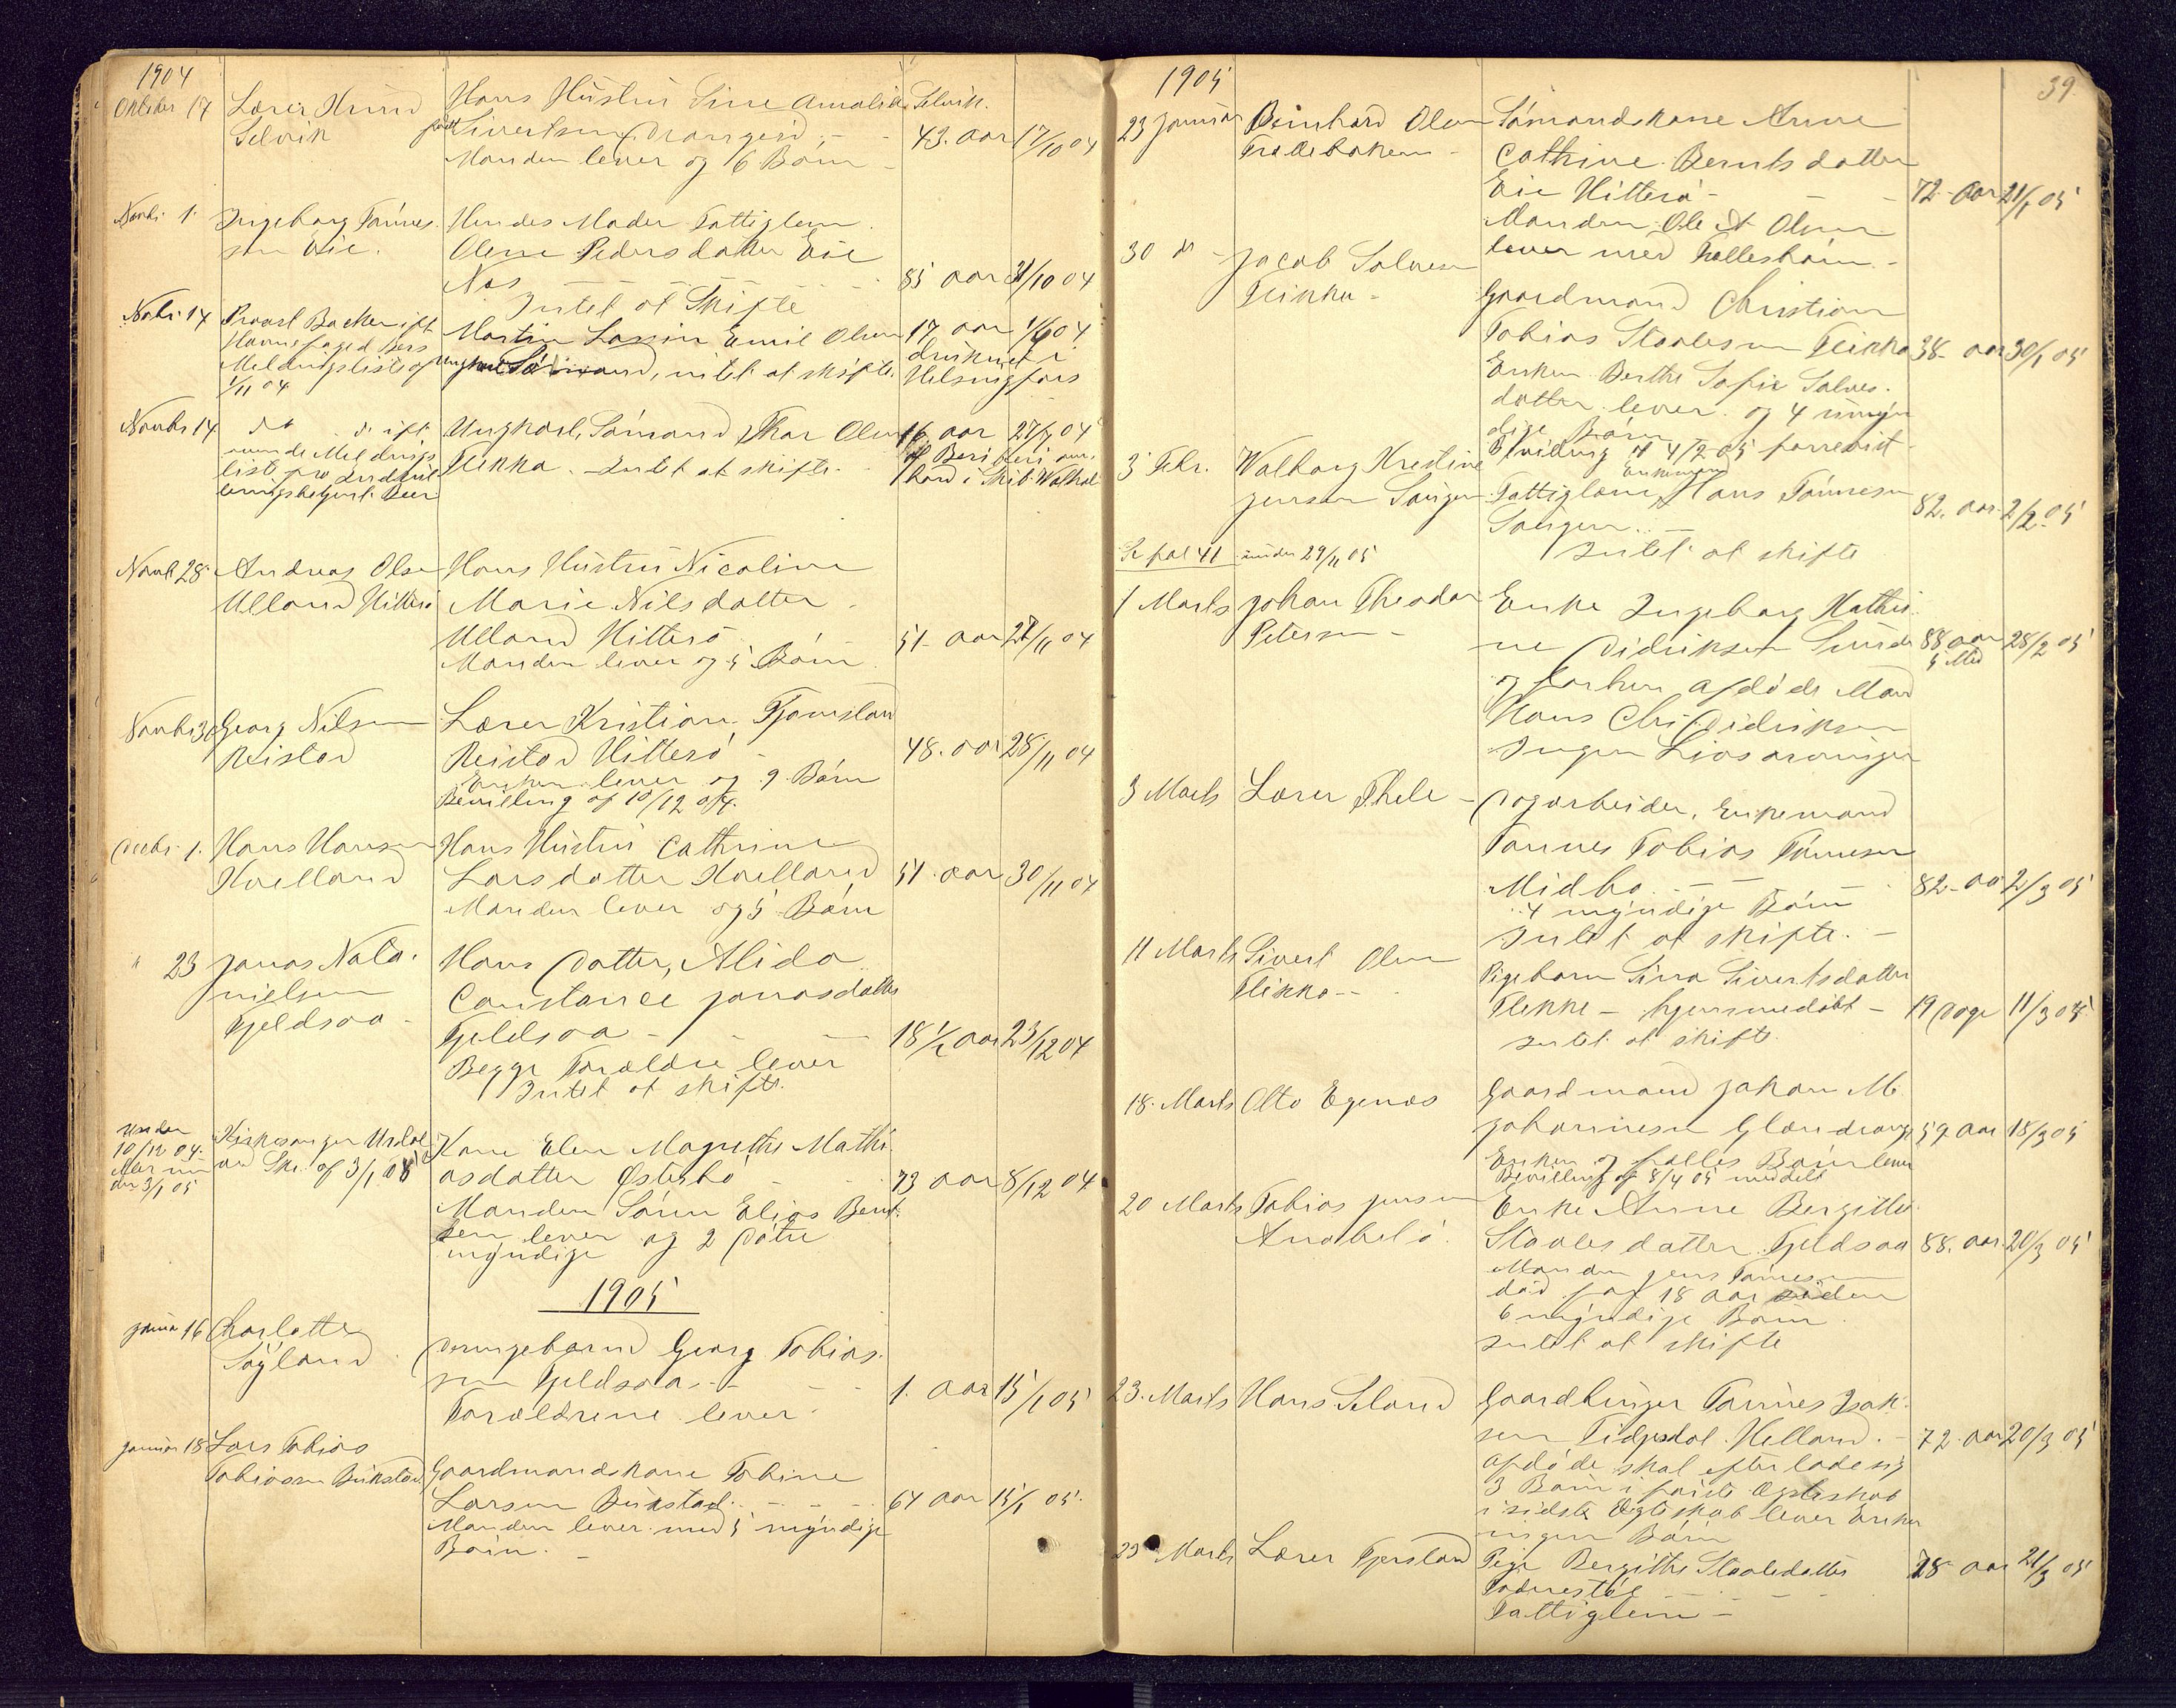 1904
Oktober 17 Lærer Knud Hans Hustru Sine Amalie Selvik.
Selvik født Sivertsen Drangeid 43. aar 17/10 04
Manden lever og 6 Børn
Novbr 1. Ingeborg Tønnes- Hendes Moder Fattiglem
sen Eie. Olene Pedersdatter Eie
Næs 85 aar 31/10 04
Intet at Skifte
Novbr 14 Provst Backer ift Martin Olsen 17 aar 04
druknet i
Meldingsliste af intet at skifte. Helsingfors
1/11 04
Novbr 14 do d. ift Ungkarl, Sømand Olsen 16 aar 27/7 04
Flekke. Intet at skifte.
Novbr 28 Andreas Olsen Hans Hustru Nicoline
Ulland Hitterø Marie Nilsdatter
Ulland Hitterø 51 aar 04
Manden lever og 5 Børn
Novbr 30 Georg Nilsen Lærer Kristian
Reistad Reistad Hitterø 48. aar 28/11 04
Enken lever og 9 Børn
Bevilling af 10/12 04.
Decbr. 1. Hans Hansen Hans Hustru Cathrine
Larsdatter 51. aar 30/11 04
Manden lever og 5 Børn
" 23 Jonas Nata- Hans Datter, Alida
nielsen Constance Jonasdatter
Fjeldsaa Fjeldsaa 18 1/2 aar 23/12 04
Begge Forældre lever
Intet at skifte.
10/12 04. Kirkesanger Kone Elen Magrethe Mathi-
3/1 05 asdatter Østebø 73 aar 8/12 04
Manden Elias Bent-
sen lever og 2 Døtre
myndige
1905
Januar 16 Charlotte Drengebarn Georg Tobias-
Søyland sen Fjeldsaa 1. aar 15/1 05
Forældrene lever
Januar 18 Lars Tobias
Tobiassen Gaardmandskone Tobine
Larsen 64 aar 15/1 05.
Manden lever med 5 myndige
Børn.
39.
1905
23 Januar Bernhard Olsen Sømandskone Anne
Cathrine Berntsdatter
Eie Hitterø 72 aar 21/1 05
Manden Ole A Olsen
lever med Fællesbørn
30 d Jacob Salvesen
Gaardmand Christian
Tobias Staalesen 38 aar 30/1 05
Enken Berthe Sofie Salves-
datter lever og 4 umyn-
dige Børn
af 4/2 05
3 Febr. Walborg Kristine Enkemand
Jensen Fattiglem Hans Tønnesen 82. aar 2/2 05
Intet at skifte
Se fol 41 under 29/11 05
1 Marts Johan Theodor Enke Ingeborg Mathi-
Petersen ne Didriksen 88 aar 28/2 05
og forhen afdøde Mand
Hans Chr. Didriksen
Ingen Livsarvinger
3 Marts Lærer Thele Dagarbeider, Enkemand
Tønnes Tobias Tønnesen
Midbø 82 aar 2/3 05
4 myndige Børn
Intet at skifte.
11 Marts Sivert Olsen Pigebarn Sina Sivertsdatter
Flikke Flekke - hjemmedøbt - 19 Dage 11/3 05
Intet at skifte.
18. Marts Otto Egenæs Gaardmand Johan M.
Johannesen 59 aar 18/3 05
Enken og fælles Børn lever
Bevilling af 8/4 05 meddelt
20 Marts Tobias Jensen Enke Anne Bergitte
Anabelø Staalesdatter Fjeldsaa 88. aar 20/3 05
Manden Jens Tønnesen
død for 18 aar siden
6 myndige Børn
Intet at skifte
23. Marts Hans Seland Gaardbruger Tønnes Isak-
sen Helland 72 aar 20/3 05
afdøde skal efterlade sig
3 Børn i første Ægteskab
i sidste Ægteskab lever Enken
ingen Børn
Marts Lærer Pige Bergitte Staalesdatter 78 aar 21/3 05
Fattiglem